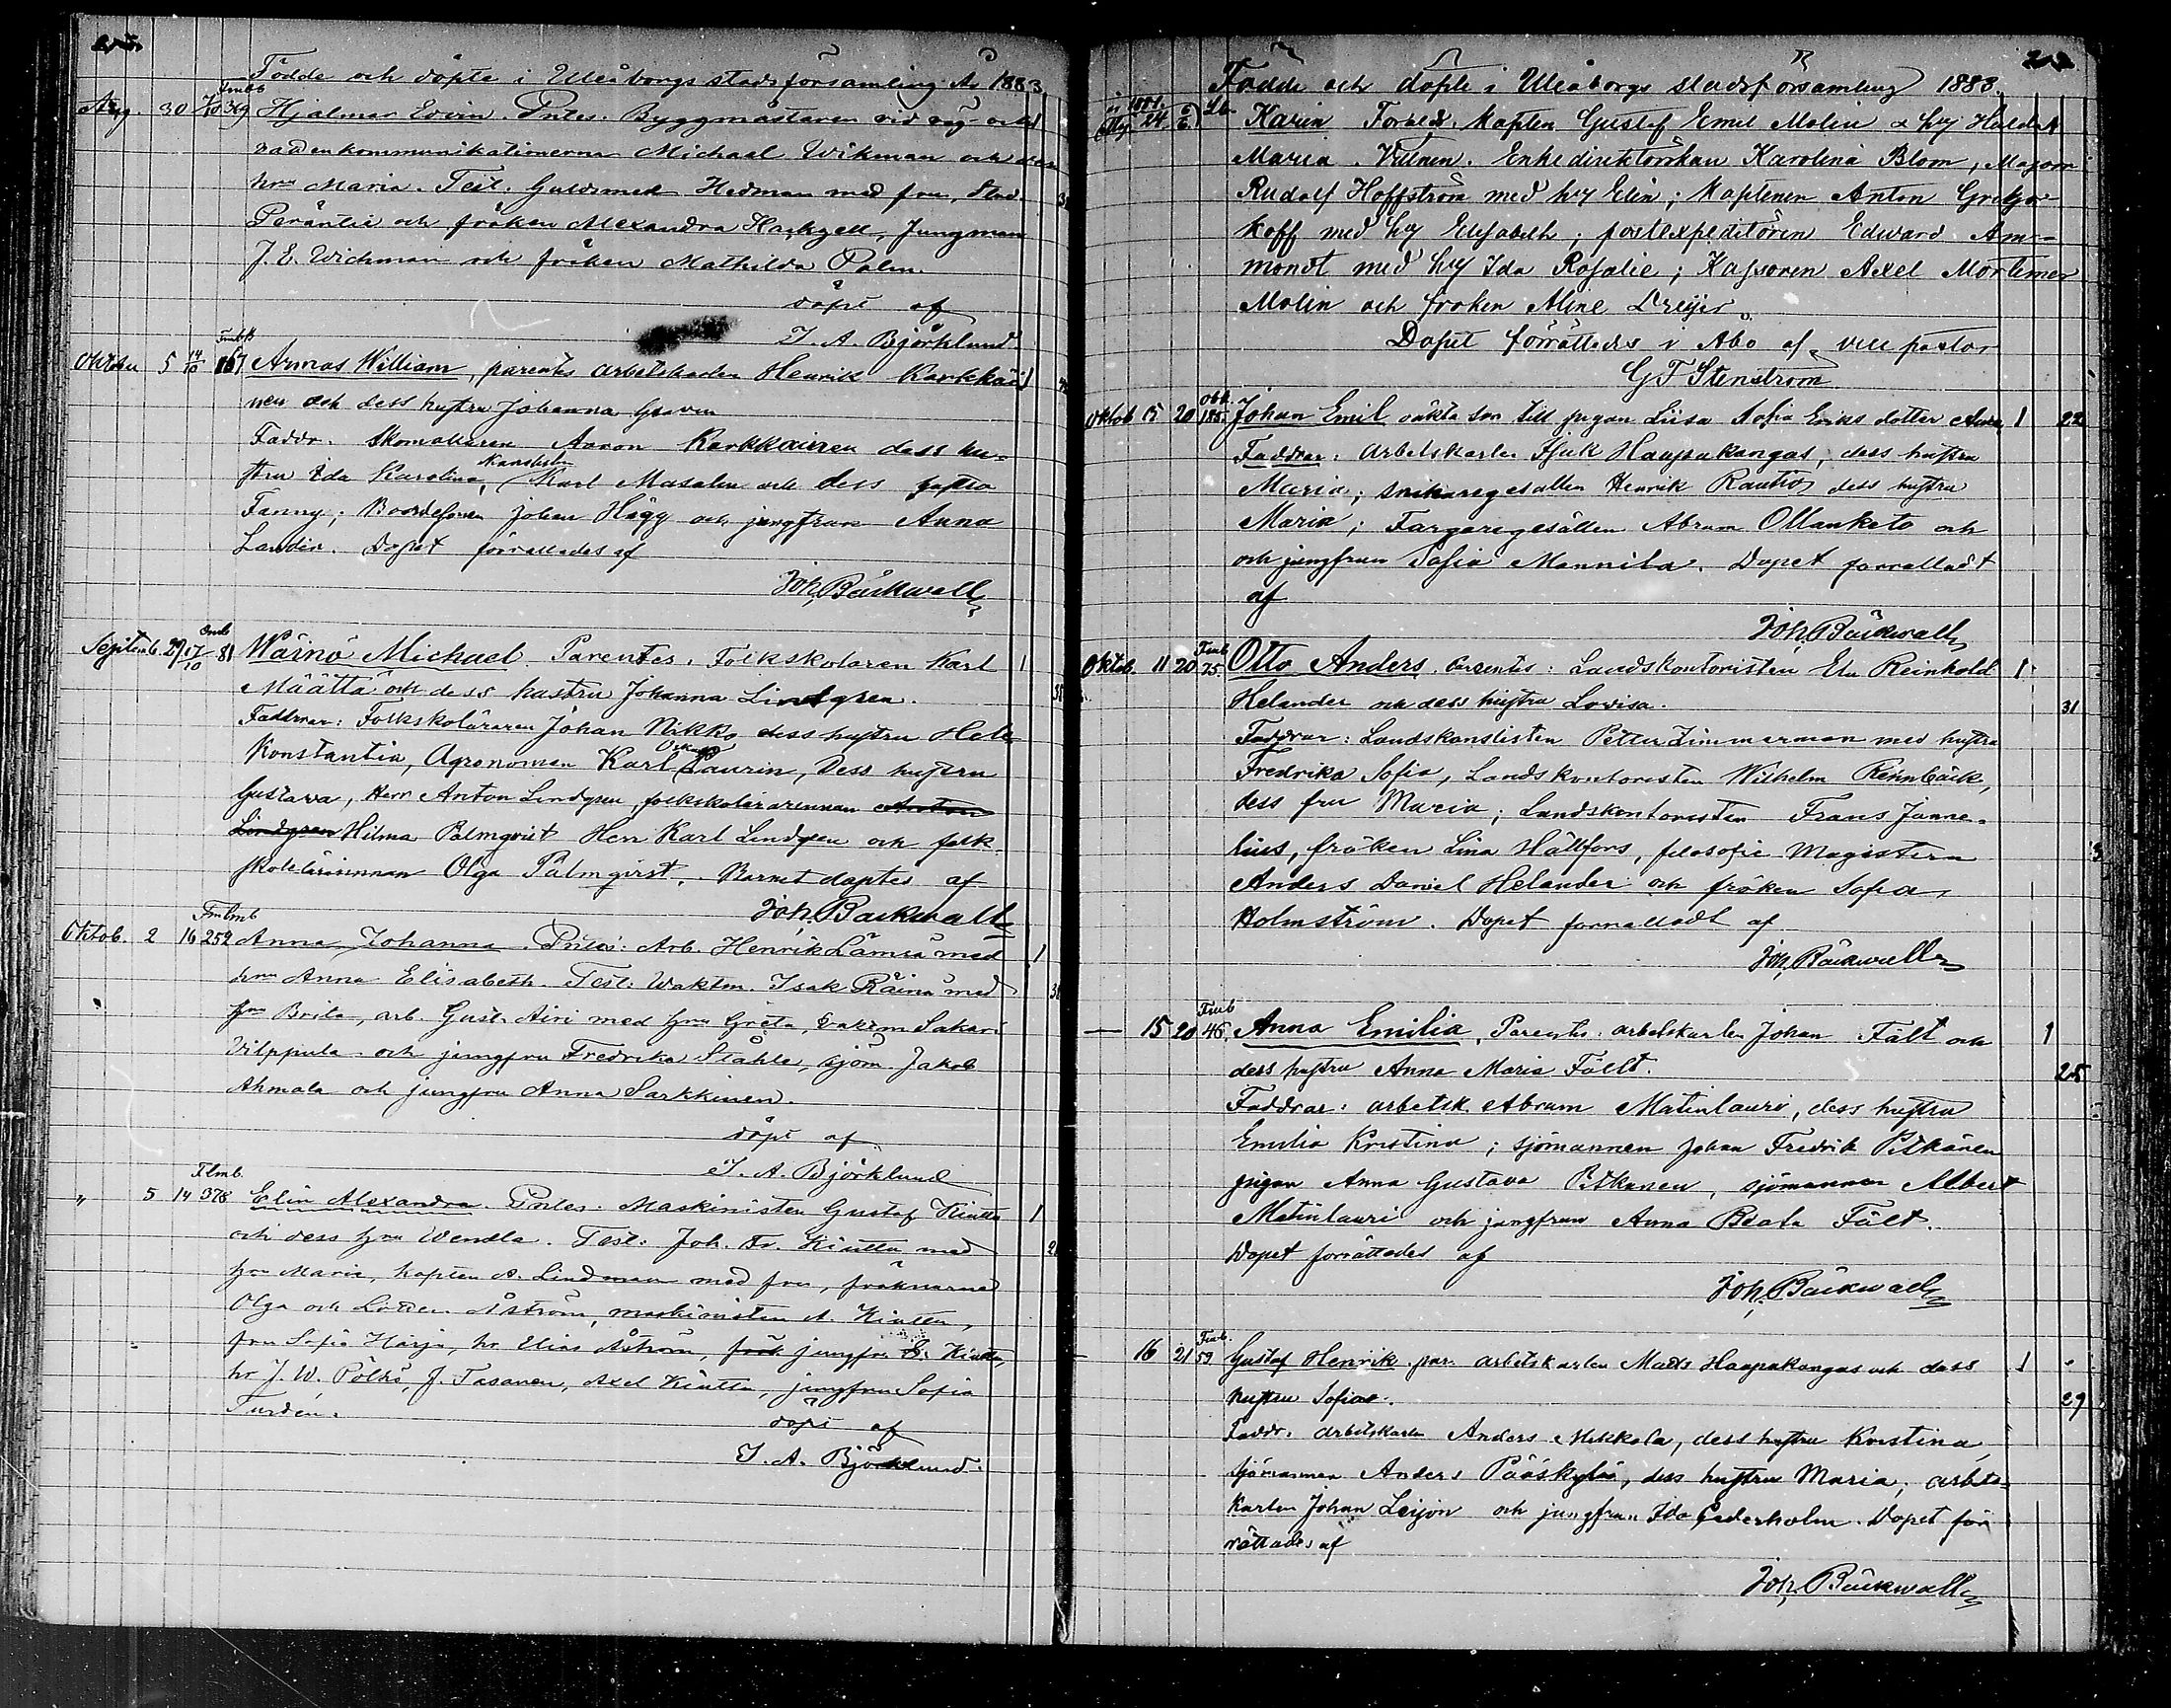 Födde och döpte i Uleåborgs stads församling År 1883.
Fmbb
Aug. 30 369 Hjalmar Edvin. Pntes. Byggmästaren vid väg- och
vattenkommunikationerna Michael Wikman och
hru Maria. Test. Guldsmed Hedman med fru, Stud.
Peräntie och fröken Alexandra Hackzell, Jungman
J. E. Wichman och fröken Mathilda Palm.
döpt af
J. A. Björklund.
Oktober 5 14/10 167 Armas William, parentes arbetskarlen Henrik Karkkäi
nen och dess hustru Johanna
Faddr. Skomakaren Aaron Karkkainen dess hu-
stru Ida Karolina, Karl Masalin och dess hustru
Fanny; Johan Hägg och jungfrun Anna
Landin. Dopet förrättades af
Joh. Bäckwall
Septemb. 29 17/10 81 Wäinö Michael. Parentes. Folkskolaren Karl 1
Määttä och dess hustru Johanna Lindgren.
Faddrar: Folkskoläraren Johan Nikko dess hustru Hele
Konstantia, Agronomen Karl Oskar Laurin, Dess hustru
Gustava, Herr Anton Lindgren, folkskolärarennan Anton
Lindgren Hilma Palmqvist Herr Karl Lindgren och folk
skolelärarinnan Olga Palmqvist. Barnet döptes af
Joh. Backwall
Fmlmb
Oktob. 2 16 252 Anna Johanna. Pntes: Arb. Henrik Lämsä med 1
hru Anna Elisabeth. Test. Waktm. Isak Räinä med
hru Brita, arb. Gust. Airi med hru Greta, Sakari
Vilppula och jungfru Fredrika Ståhle, sjöm. Jakob
Ahmala och jungfru Anna Sarkkinen.
döpt af
J. A. Björklund
Flmb.
" 5 14 378 Elin Alexandra. Pntes. Maskinisten Gustaf Kiutta 1
och dess hru Wendla. Test. Joh. Fr. Kiutta med
hru Maria, kapten A. Lindman med fru, fröknarna
Olga och Åström, maskinisten A. Kiutta,
fru Sofia Harju, hr Elias Åström, frök jungfru E. Kiutta,
hr J. W. Pölhö, J. Tasanen, Axel Kiutta, jungfru Sofia
Turdén.
döpt af
J. A. Björklund.
Födde och döpte i Uleåborgs stadsförsamling 1883.
år 1881.
Maj. 24. 6/6 Lb. Karin Föräld. Kapten Gustaf Emil Molin & h:y Hulda
Maria. Vittnen. Enkedirektörskan Karolina Blom, Majoren
Rudolf Hoffström med h:y Elin; Kaptenen Anton Gretjor
koff med h:y Elisabeth; postexpeditören Edward Am-
mondt med h:y Ida Rosalie; Kassören Axel Mortimer
Molin och fröken Aline Dreijer.
Dopet förrättades i Abo af vice pastor
G T Stenström
Obk.
Oktob 15 20 185 Johan Emil oäkta son till pigan Liisa Sofia Eriks dotter 1 22
Faddrar: Arbetskarlen Isak Haapakangas, dess hustru
Maria; snikaregesällen Henrik Rautio dess hustru
Maria; Fargaregesällen Abram Ollanketo och
och jungfrun Sofia Mannila. Dopet forrattadt
af
Joh. Bäckwall
Fmb
Oktob. 11 20 75. Otto Anders. Parentes: Landskontoristen Elu Reinhold 1
Helander och dess hustru Lovisa. 31
Faddrar: Landskanslisten Petter Zimmerman med hustru
Fredrika Sofia, Landskontoristen Wilhelm Rennbäck,
dess fru Maria; Landskontoristen Frans Janne-
lius, fröken Lina Hällfors, filosofie Magistern
Anders Daniel Helander och fröken Sofia
Holmström. Dopet forrattadt af
Joh. Bäckwall
Fmb
— 15 20 46. Anna Emilia, Parentes: arbetskarlen Johan Fält och 1
dess hustru Anna Maria Fält. 25
Faddrar: arbetsk. Abram Matinlauri, dess hustru
Emilia Kristina; sjömannen Johan Fredrik Pitkänen
pigan Anna Gustava Pitkänen, sjömannen Albert
Matinlauri och jungfrun Anna Beata Fält.
Dopet förrättades af
Joh. Bäckwall
Fmb.
— 16 21 59 Gustaf Henrik par. arbetskarlen Matts Haapakangas och dess 1
hustru Sofia. 29
Faddr. arbetskarlen Anders Mekkola, dess hustru Kristina,
sjömannen Anders Pääskylä, dess hustru Maria, arbets-
karlen Johan Leijon och jungfrun Ida Cederholm. Dopet för
rättades af
Joh. Bäckwall